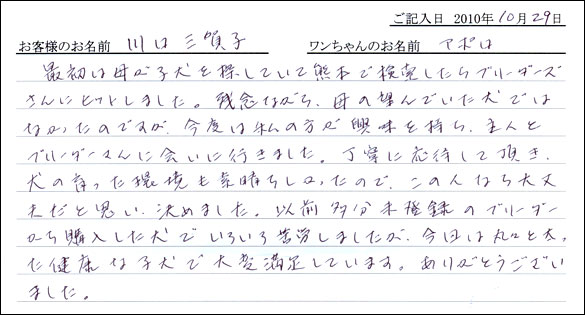 ご記入日 2010年10月29日
お客様のお名前 川口三賀子 ワンちゃんのお名前 アポロ
最初は母が子犬を探していて熊本で検索したらブリーダーズ
さんにヒットしました。残念ながら、母の望んでいた犬では
なかったのですが、今度は私の方が興味を持ち、主人と
ブリーダーさんに会いに行きました。丁寧に応待して頂き、
犬の育った環境も素晴らしかったので、この人なら大丈
夫だと思い、決めました。以前多分未登録のブリーダー
から購入した犬でいろいろ苦労しましたが、今回は丸々と太っ
た健康な子犬で大変満足しています。ありがとうござい
ました。